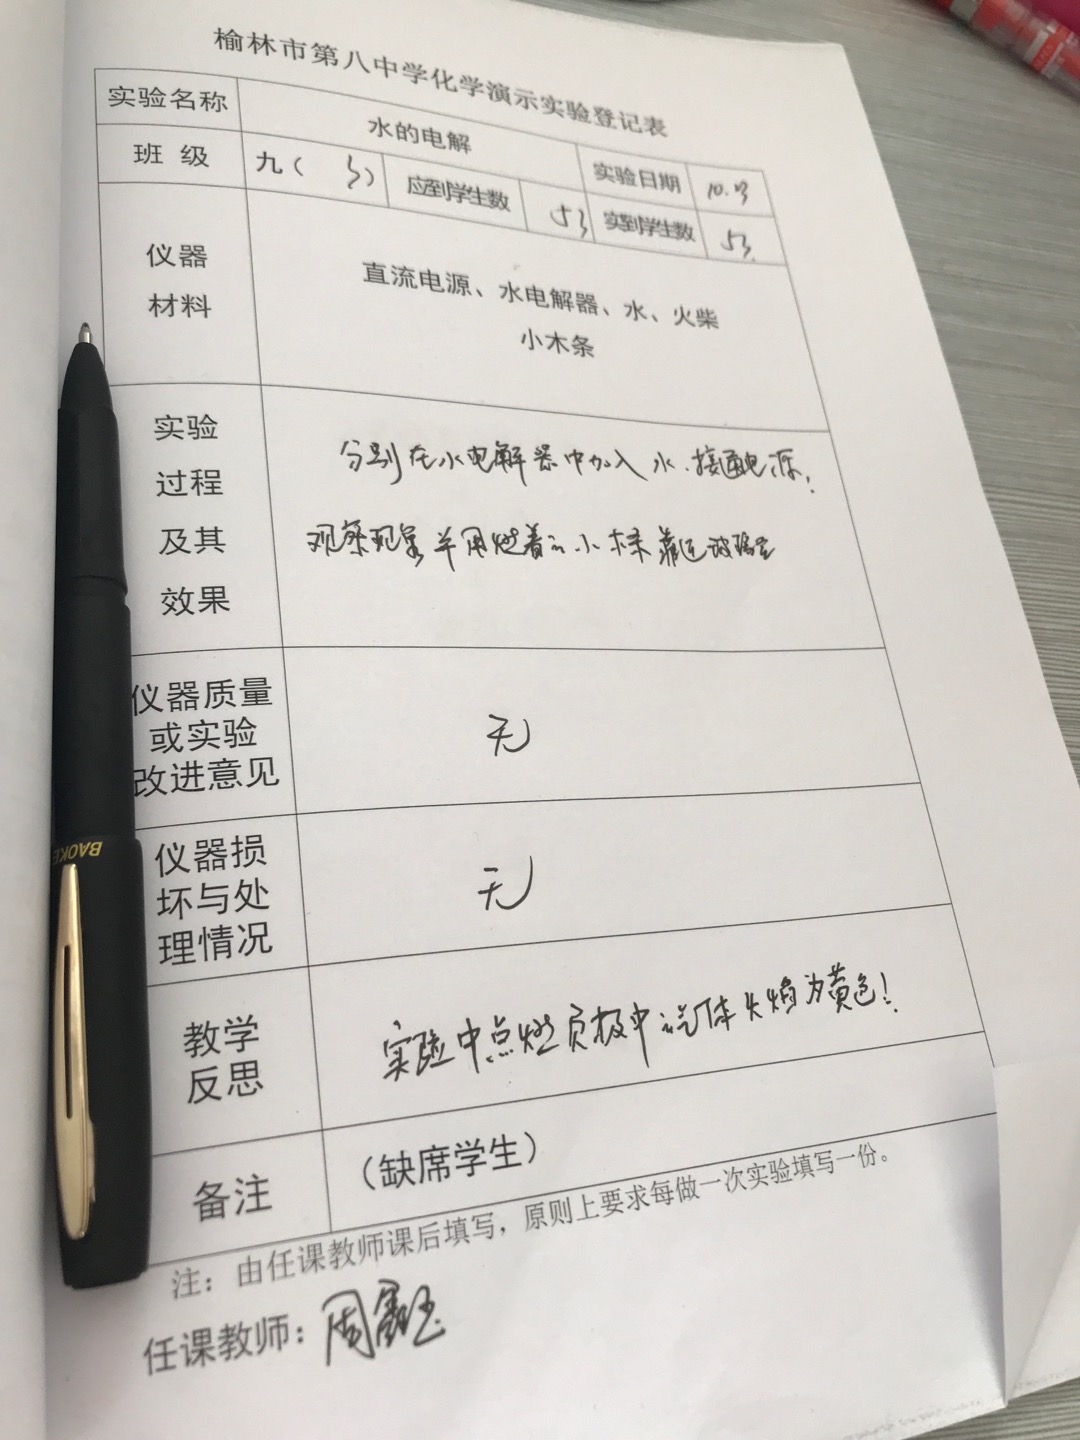 榆林市第八中学化学演示实验登记表
实验名称 水的电解 实验日期 10.
班 级 九( 3) 应到学生数 53 实到学生数 53.
仪器
材料
直流电源、水电解器、水、火柴
小木条
实验
过程
及其
效果
分别在水电解器中加入水.接通电源,
观察现象并用燃着的小木条靠近玻璃管
仪器质量
或实验
改进意见
无
仪器损
坏与处
理情况
无
教学
反思
实验中点燃负极中气体火焰为黄色!
备注
(缺席学生)
注：由任课教师课后填写，原则上要求每做一次实验填写一份。
任课教师：周
BAOKE